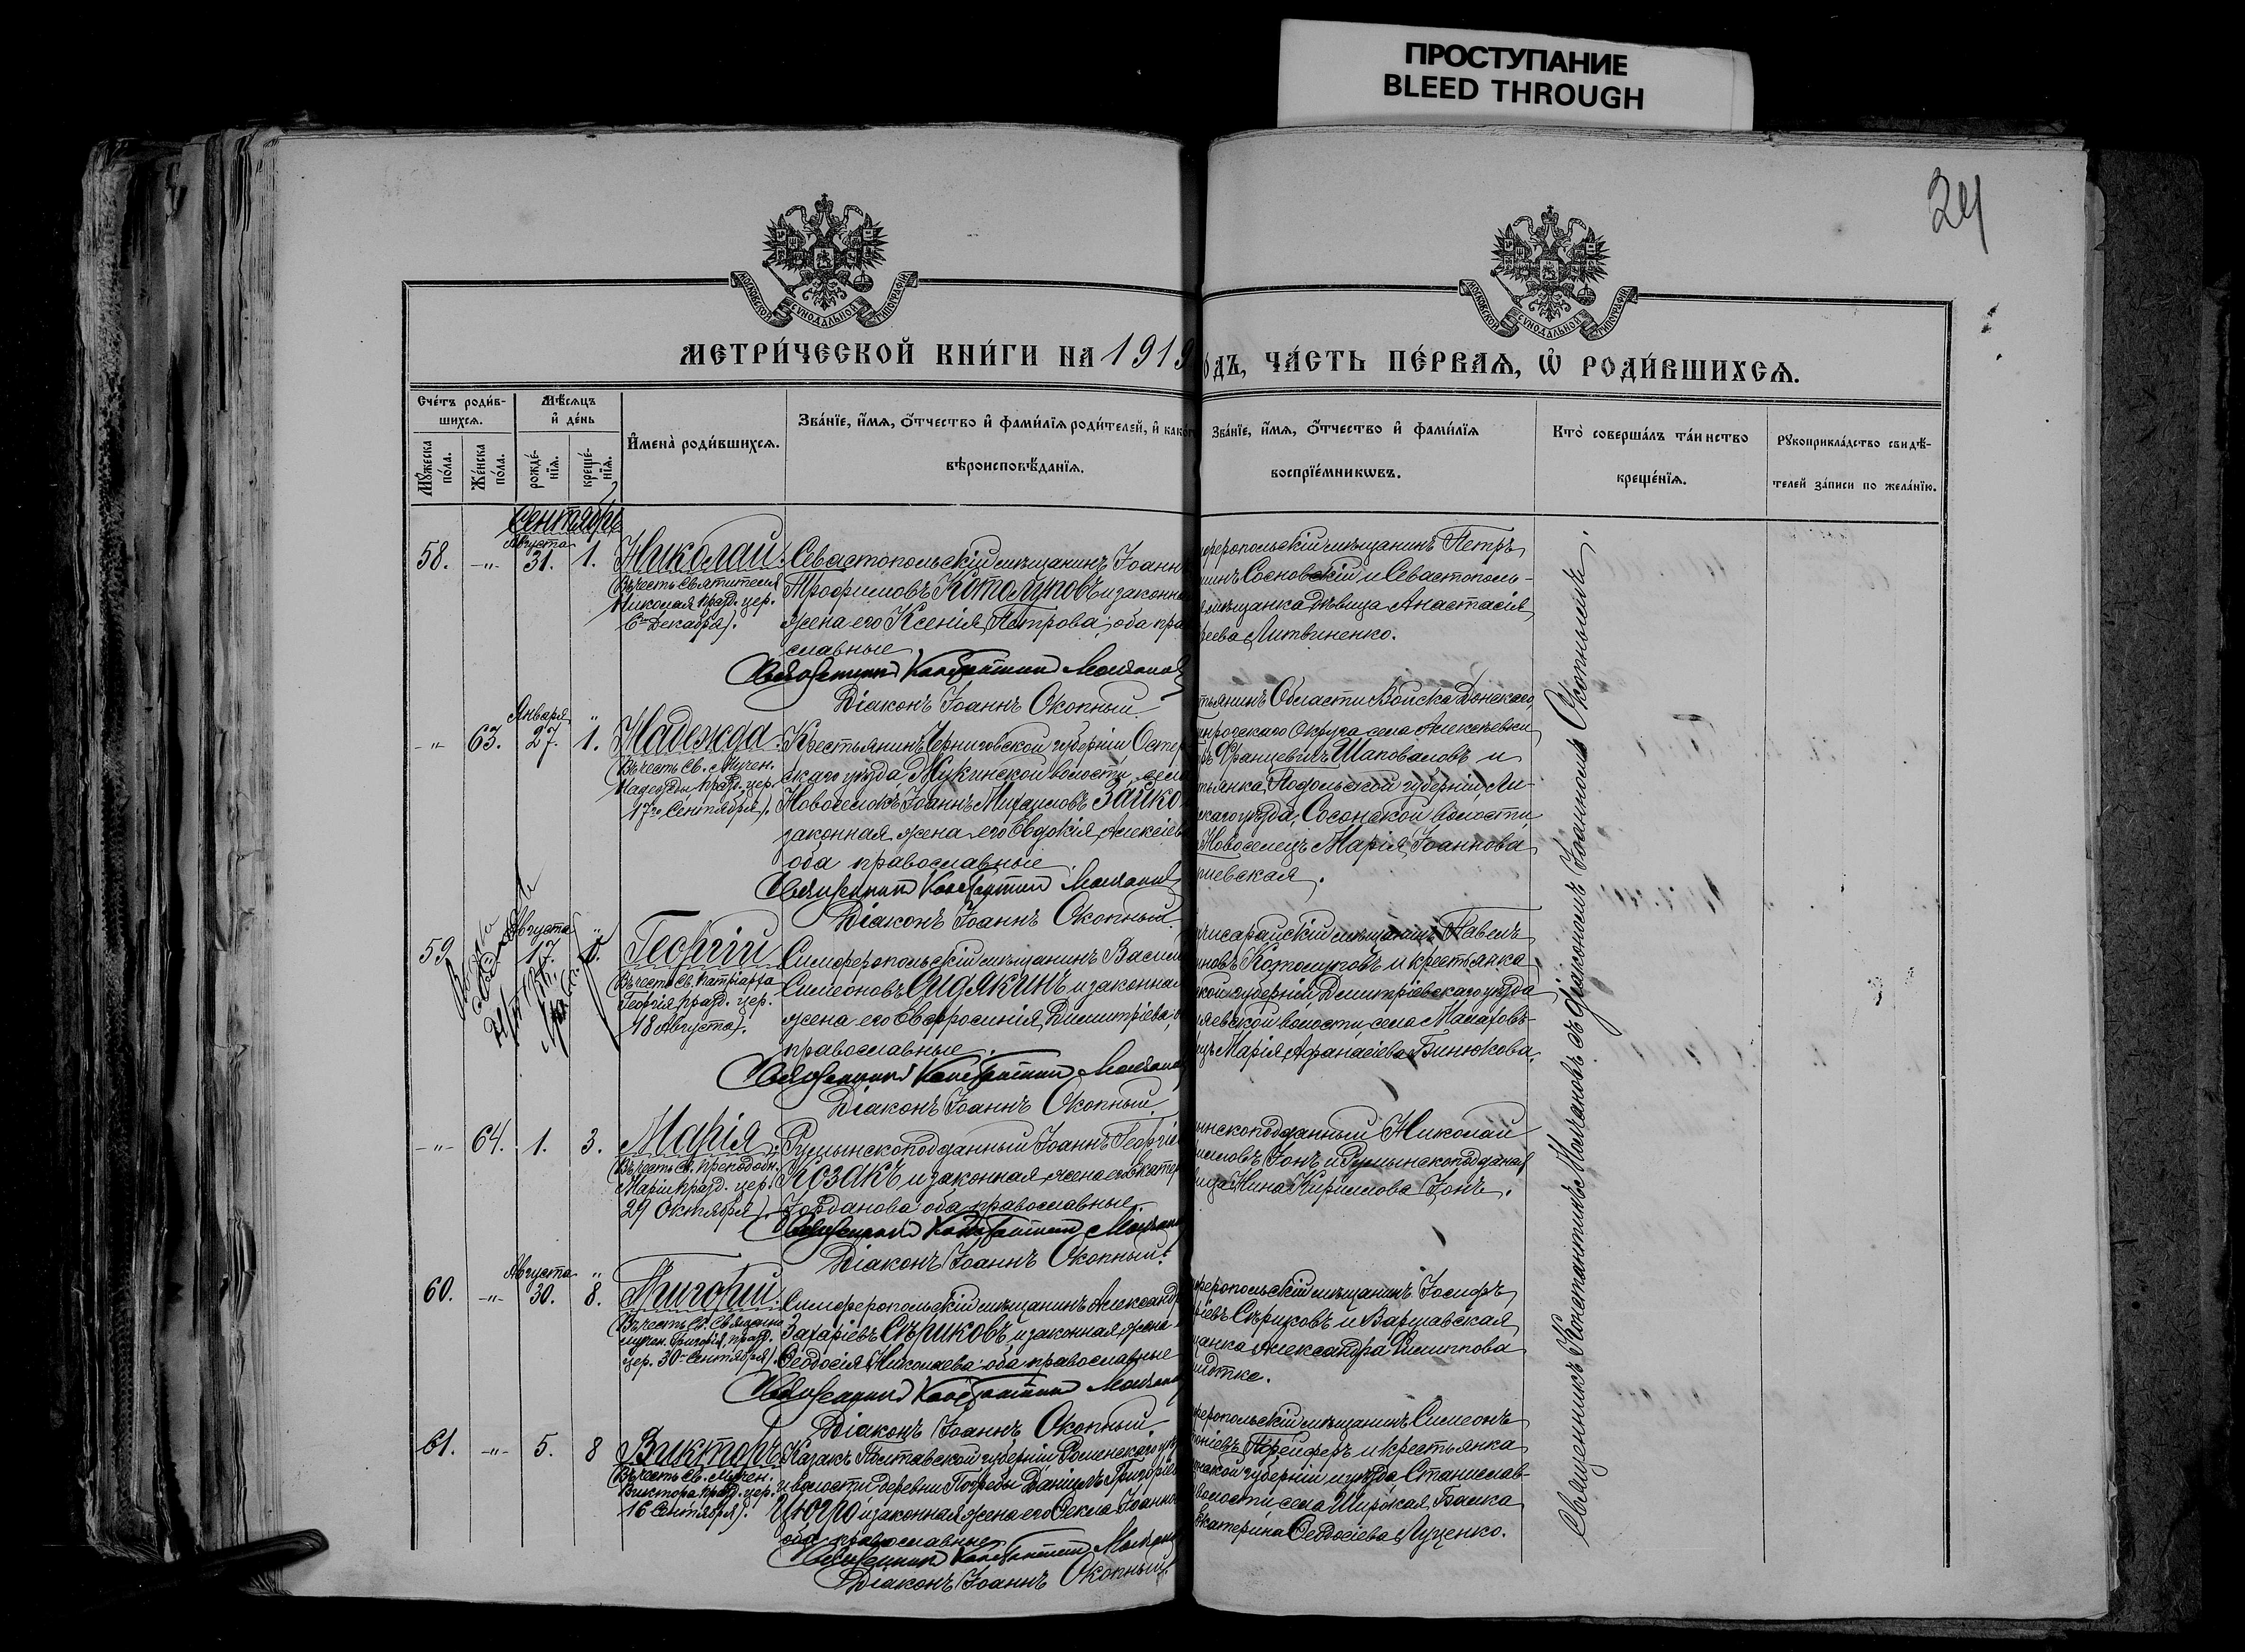 ПРОСТУПАНИЕ
BLEED THROUGH
24
МОСКОВСКОЙ СѴНОДАЛЬНОЙ ТИПОГРАФІИ
МОСКОВСКОЙ СѴНОДАЛЬНОЙ ТИПОГРАФІИ
МЕТРИ́ЧЕСКОЙ КНИ́ГИ НА 1919
ОДЪ, ЧА́СТЬ ПЕ́РВАѦ, Ѡ҆ РОДИ́ВШИХСѦ.
Сче́тъ роди́в-
шихсѧ.
Мѣ́сѧцъ
и҆ де́нь
Мꙋ́жеска
по́ла.
Же́нска
по́ла.
рожде́-
нїѧ.
креще́-
нїѧ.
И҆мена̀ роди́вшихсѧ.
Зва́нїе, и҆́мѧ, ѻ҆́тчество и҆ фами́лїѧ роди́телей, и҆ како́г
вѣроисповѣ́данїѧ.
Зва́нїе, и҆́мѧ, ѻ҆́тчество и҆ фами́лїѧ
воспрїе́мникѡвъ.
Кто̀ соверша́лъ та́инство
креще́нїѧ.
Рꙋкоприкла́дство свидѣ́-
телей за́писи по жела́нїю.
Сентябрь
Августа
58. -"- 31. 1. Николай.
(Въ честь Святителя
Николая празд. цер.
6го Декабря).
Севастопольскій мѣщанинъ Іоанн
Трофимовъ Котолуповъ и законна
жена его Ксенія Петрова, оба пра
славные
Священникъ Константинъ Молчанов
Діаконъ Іоаннъ Окопный.
феропольскій мѣщанинъ Петръ
инъ Сосновскій и Севастополь-
я мѣщанка дѣвица Анастасія
еева Литвиненко.
Января "
-"- 63. 27. 1. Надежда.
(Въ честь Св. Мучен.
Надежды празд. цер.
17го Сентября).
Крестьянинъ Черниговской губерніи Остер
скаго уѣзда Жукинской волости, села
Новоселокъ Іоаннъ Михаиловъ Зайко
законная жена его Евдокія Алексіев
оба православные
Священникъ Константинъ Молчанов
Діаконъ Іоаннъ Окопный.
тьянинъ Области Войска Донскаго,
нрогскаго Округа села Алексѣевки
Францевичъ Шаповаловъ и
тьянка Подольской губерніи, Ли-
скаго уѣзда, Сосонской волости
Новоселецъ Марія Іоаннова
 шевская.
Августа "
59. 17. Георгій
(Въ честь Св. Патріарха
Георгія празд. цер.
18 Августа).
Симферопольскій мѣщанинъ Васил
Симеоновъ Сидякинъ и законная
жена его Евфросинія Димитріева, о
православные.
Священникъ Константинъ Молчанов
Діаконъ Іоаннъ Окопный.
чисарайскій мѣщанинъ Павелъ
новъ Котолуповъ и крестьянка
кой губерніи Дмитріевскаго уѣзда
яевской волости, села Малаховъ-
цъ Марія Афанасіева Бинюкова.
-"- 64. 1. 3. Марія.
(Въ честь Св. Преподобн.
Маріи празд. цер.
29 Октября).
Румынскоподданный Іоаннъ Георгіев
Козакъ и законная жена его Екатер
Іорданова оба православные.
Священникъ Константинъ Молчан
Діаконъ Іоаннъ Окопный.
ынскоподданный Николай
иловъ Іонъ и Румынскоподданая
ица Нина Кириллова Іонъ.
Августа "
60. -"- 30. 8. Григорій.
(Въ честь Св. Священно
мучен. Григорія, празд.
цер. 30го Сентября).
Симферопольскій мѣщанинъ Александр
Захаріевъ Сѣриковъ, и законная жена
Ѳеодосія Николаева оба православные
Священникъ Константинъ Молчанов
Діаконъ Іоаннъ Окопный
феропольскій мѣщанинъ Іосифъ
ріевъ Сѣриковъ и Варшавская
анка Александра Филиппова
идтке.
61. -"- 5. 8 Викторъ
(Въ честь Св. Мучен.
Виктора празд. цер.
16 Сентября).
Казакъ Полтавской губерніи Роменскаго уѣз
и волости деревни Погребы Даніилъ Григоріев
Цюгро и законная жена его Ѳекла Іоанно
оба православные
Священникъ Константинъ Молчан
Діаконъ Іоаннъ Окопный.
феропольскій мѣщанинъ Симеонъ
оніевъ Прейферъ и крестьянка
ской губерніи и уѣзда Станислав-
волости села Широкая Балка
Екатерина Ѳеодосіева Луценко.
Священникъ Константинъ Молчановъ съ діакономъ Іоанномъ Окопнымъ.